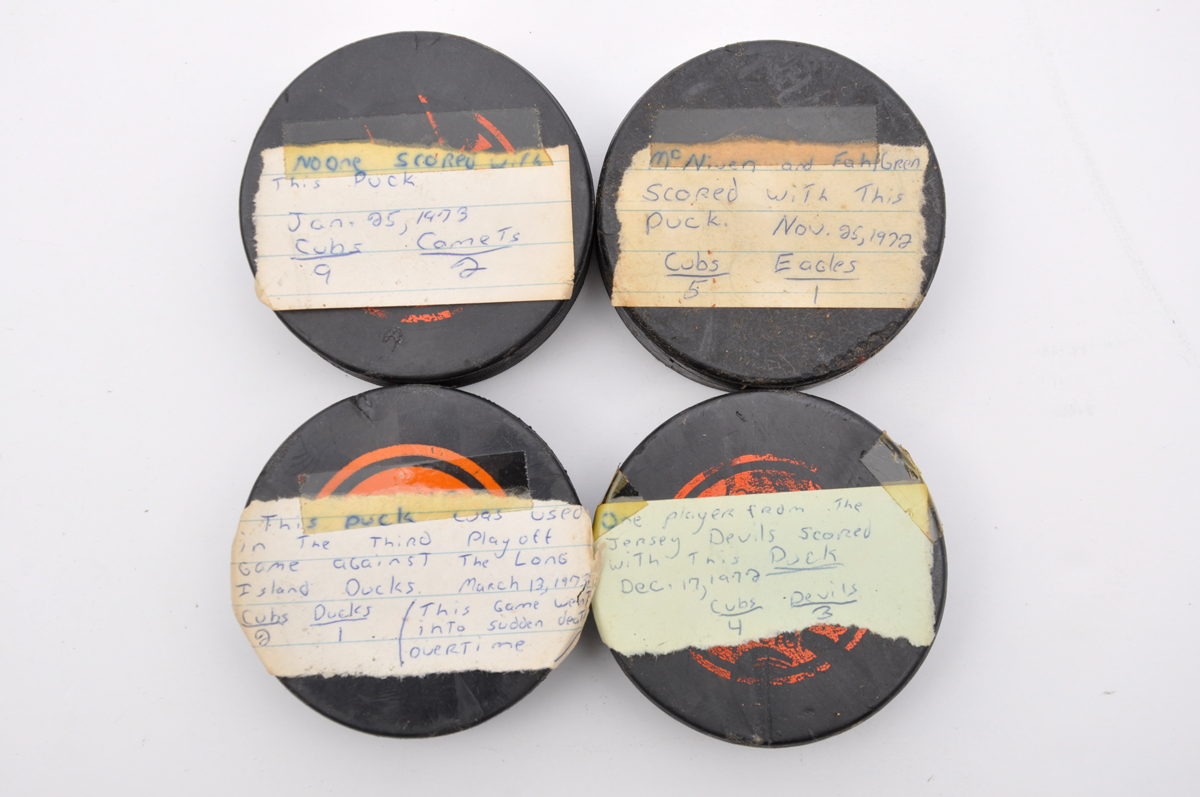 No one scored with
This Puck
Jan. 25, 1973
Cubs Comets
9 2
McNiven and Fahlgren
Scored with This
Puck. Nov. 25, 1972
Cubs Eagles
5 1
This puck was used
in The Third Playoff
Game against The Long
Island Ducks. March 12, 197
Cubs Ducks
2 1
(This Game went
into sudden deat
overtime
One player from The
Jersey Devils Scored
with This Puck
Dec. 17, 1972
Cubs Devils
4 3